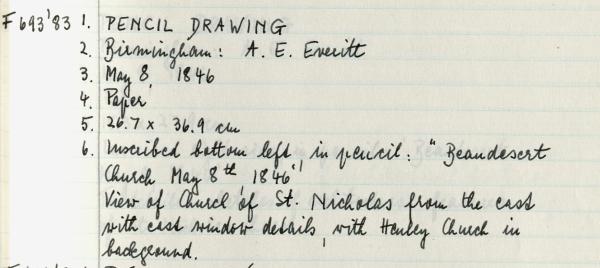 F693'83 1. PENCIL DRAWING
2. Birmingham: A. E. Everitt
3. May 8 1846
4. Paper
5. 26.7 x 36.9 cm
6. Inscribed bottom left in pencil: "Beaudesert
Church May 8th 1846"
View of Church of St. Nicholas from the east
with east window details, with Henley Church in
background.